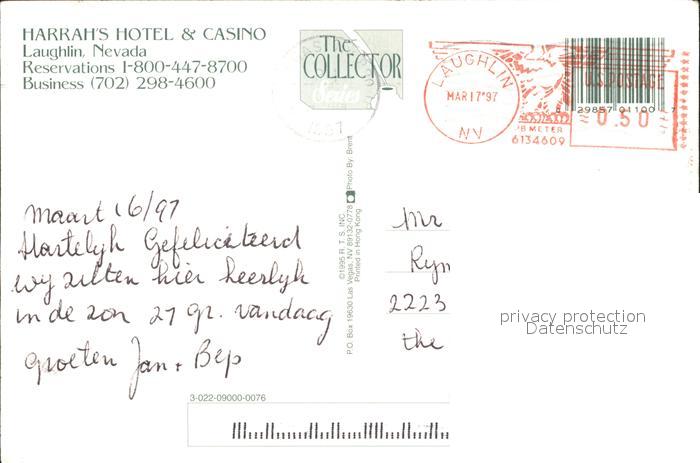 HARRAH'S HOTEL & CASINO
Laughlin, Nevada
Reservations 1-800-447-8700
Business (702) 298-4600
The
COLLECTOR
Series
LAUGHLIN
MAR 17 '97
NV
PB METER
6134609
U.S. POSTAGE
0.50
8 29857 01100 7
Maart 16/97
Hartelijk Gefeliciteerd
wij zitten hier heerlijk
in de zon 27 gr. vandaag
groeten Jan + Bep
©1995 R. T. S. INC.
P.O. Box 19630 Las Vegas, NV 89132-0778
Photo By: Brent
Printed in Hong Kong
Mr
Ryn
2223
the
privacy protection
Datenschutz
3-022-09000-0076